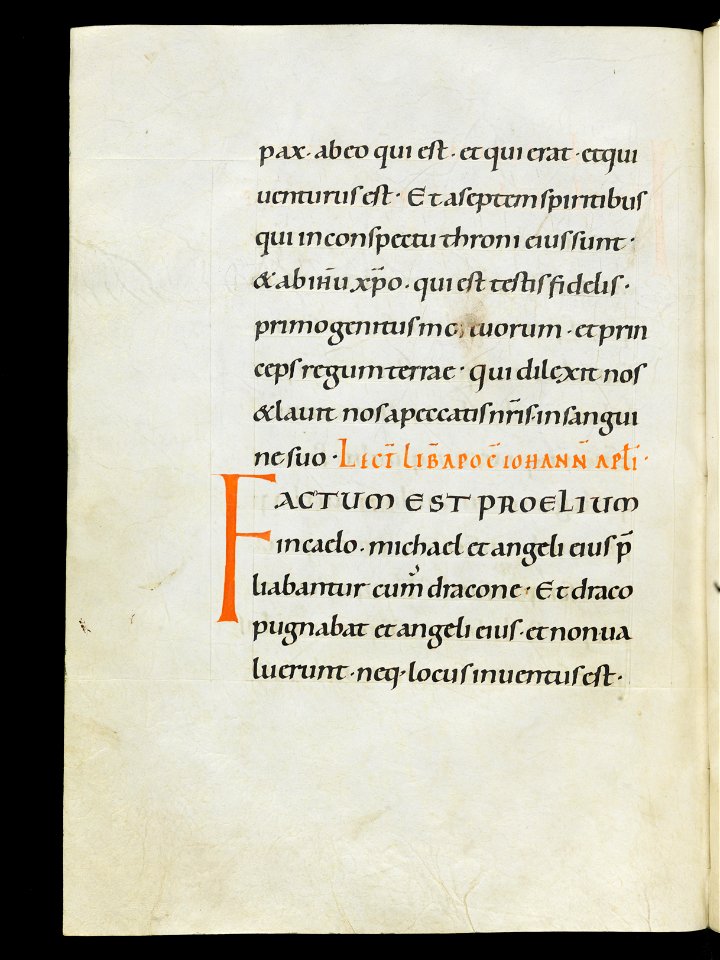 pax· abeo qui est· et qui erat· et qui
uenturus est· Et a septem spiritibus
qui in conspectu throni eius sunt·
& ab ihu xp̄o· qui est testis fidelis·
primogenitus mortuorum· et prin
ceps regum terrae· qui dilexit nos
& lauit nos a peccatis nr̄is· in sangui
ne suo· LECT̄ LIB̄ APOC̄ IOHANN̄ APLI·
FACTUM EST PROELIUM
in caelo· michael et angeli eius p̄
liabantur cum dracone· Et draco
pugnabat et angeli eius· et non ua
luerunt· neq· locus inuentus est·